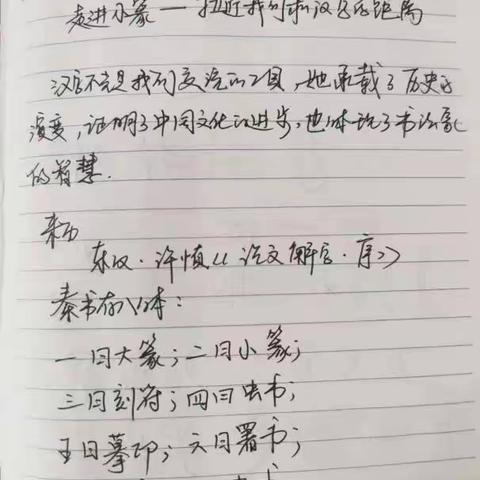 走进小篆 — 拉近我们和汉字的距离
汉字不只是我们交流的工具,她承载了历史的
演变,证明了中国文化的进步,也体现了书法家
的智慧.
来历
东汉·许慎《说文解字·序》
秦书有八体:
一曰大篆;二曰小篆;
三曰刻符;四曰虫书;
五曰摹印;六曰署书;